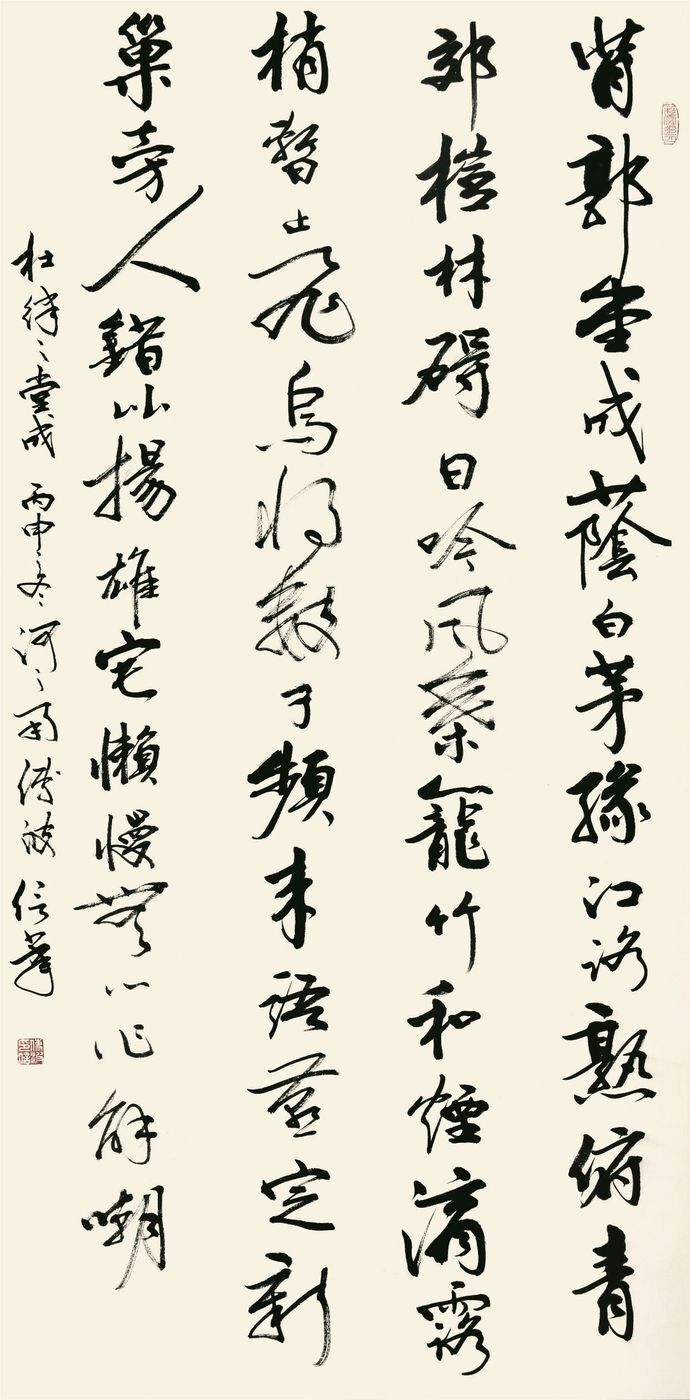 背郭堂成蔭白茅緣江路熟俯青
郊榿林礙日吟風葉籠竹和煙滴露
梢暫止飛烏將數子頻來語燕定新
巢旁人錯比揚雄宅懶慢無心作解嘲
杜律之堂成丙申冬河之南波信筆